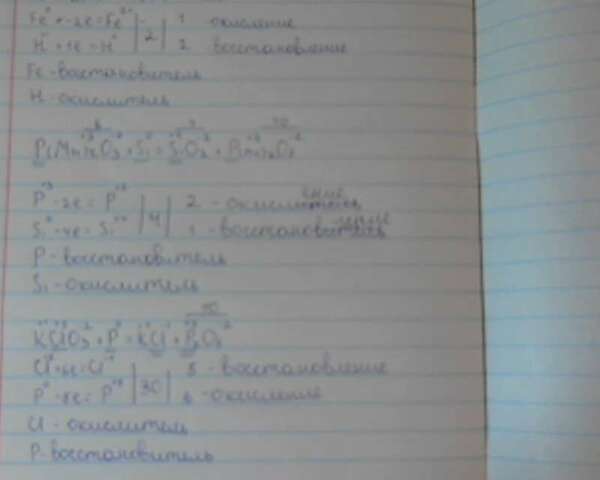 Fe⁰ - 2e = Fe²⁺ | 2 | 1 окисление
H⁺ + 1e = H⁰ 2 восстановление
Fe - восстановитель
H - окислитель
+ Si⁰ = SiO₂ +
2 - окисление
Si⁰ - 4e = Si⁺⁴ | 4 | 1 - восстановление
P - восстановитель
Si - окислитель
30
KClO₃ + P⁰ = KCl + P₂O₅
Cl⁺⁵ + 6e = Cl⁻¹ 5 - восстановление
P⁰ - 5e = P⁺⁵ | 30 | 6 - окисление
Cl - окислитель
P - восстановитель